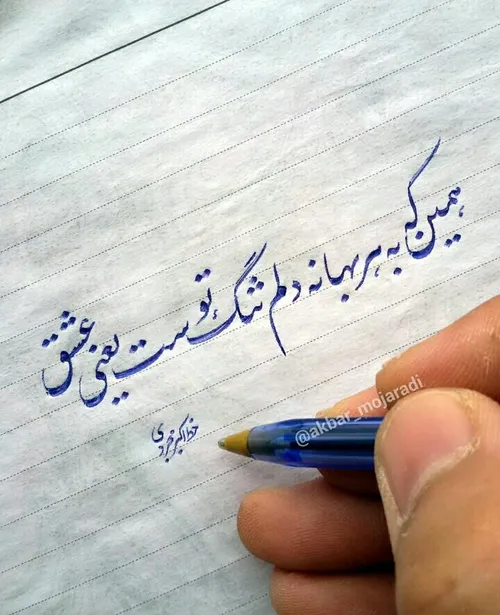 همین که به هر بهانه دلم تنگ توست یعنی عشق
خط اکبر مجردی
@akbar_mojaradi